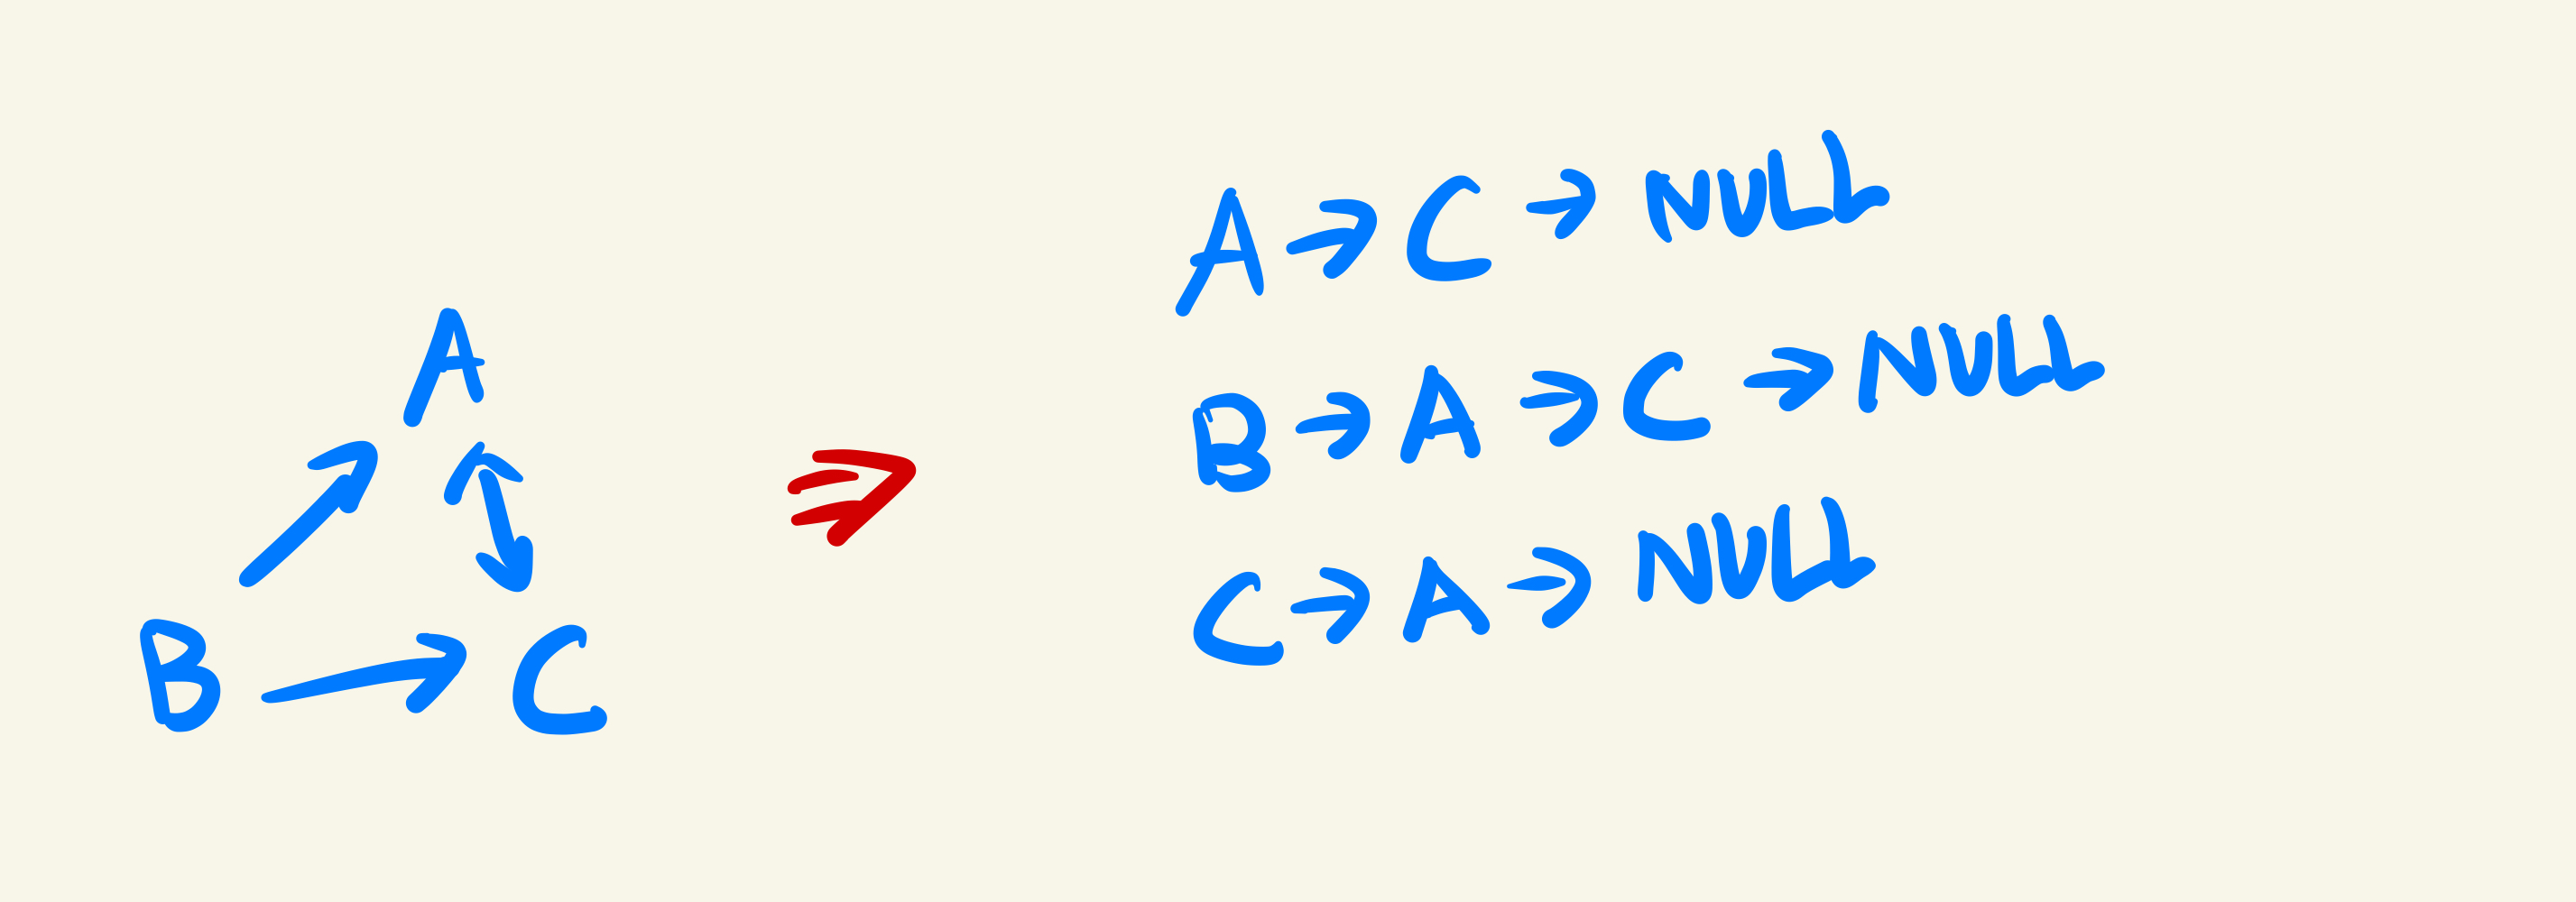 A
B → C
A → C → NULL
B → A → C → NULL
C → A → NULL